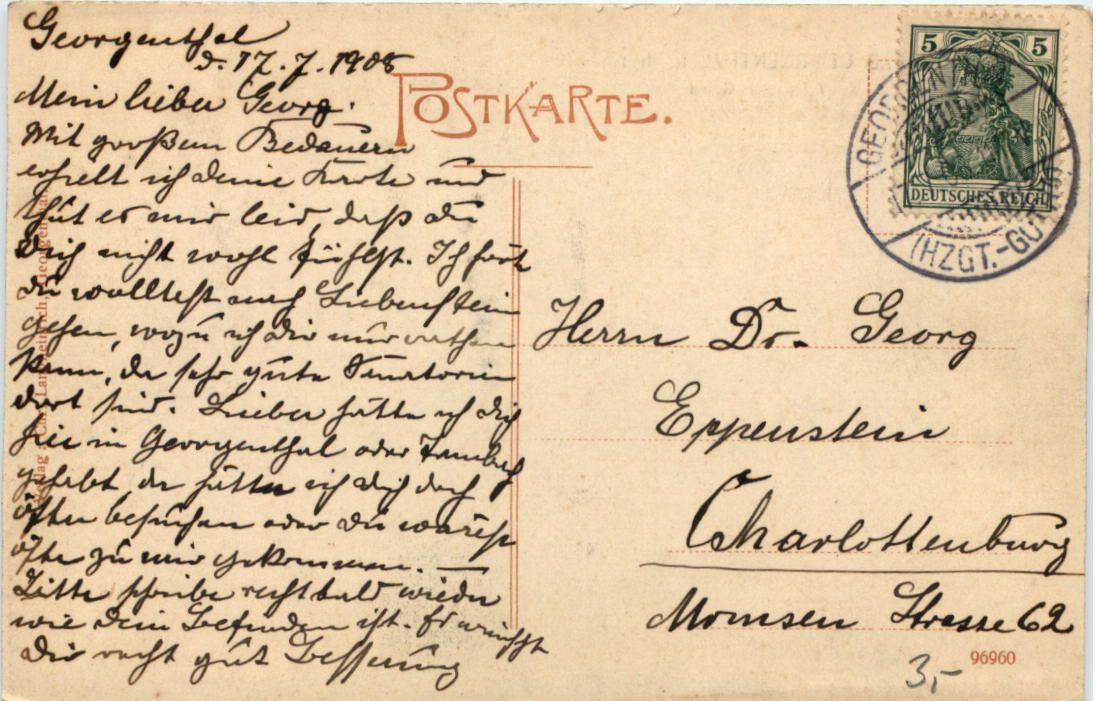 Georgenthal
d. 17.7.1908
Mein lieber Georg.
Mit großem Bedauern
erhielt ich deine Karte und
thut es mir leid, daß du
Dich nicht wohl fühlst. Ich hörte
du wolltest nach Liebenstein
gehen, wozu ich dir nur rathen
kann, da sehr gute Sanatorien
dort sind. Lieber hätte ich dich
hier in Georgenthal oder Tambach
gehabt, da hätte ich dich doch
öfter besuchen oder du wärest
öfter zu mir gekommen. —
Bitte schreibe recht bald wieder
wie dein Befinden ist. Es wünscht
dir recht gut Besserung
POSTKARTE.
5 5
DEUTSCHES REICH
GEORGENTHAL
(HZGT.-GOTHA)
Herrn Dr. Georg
Eppenstein
Charlottenburg
Momsen Strasse 62
96960
3,-